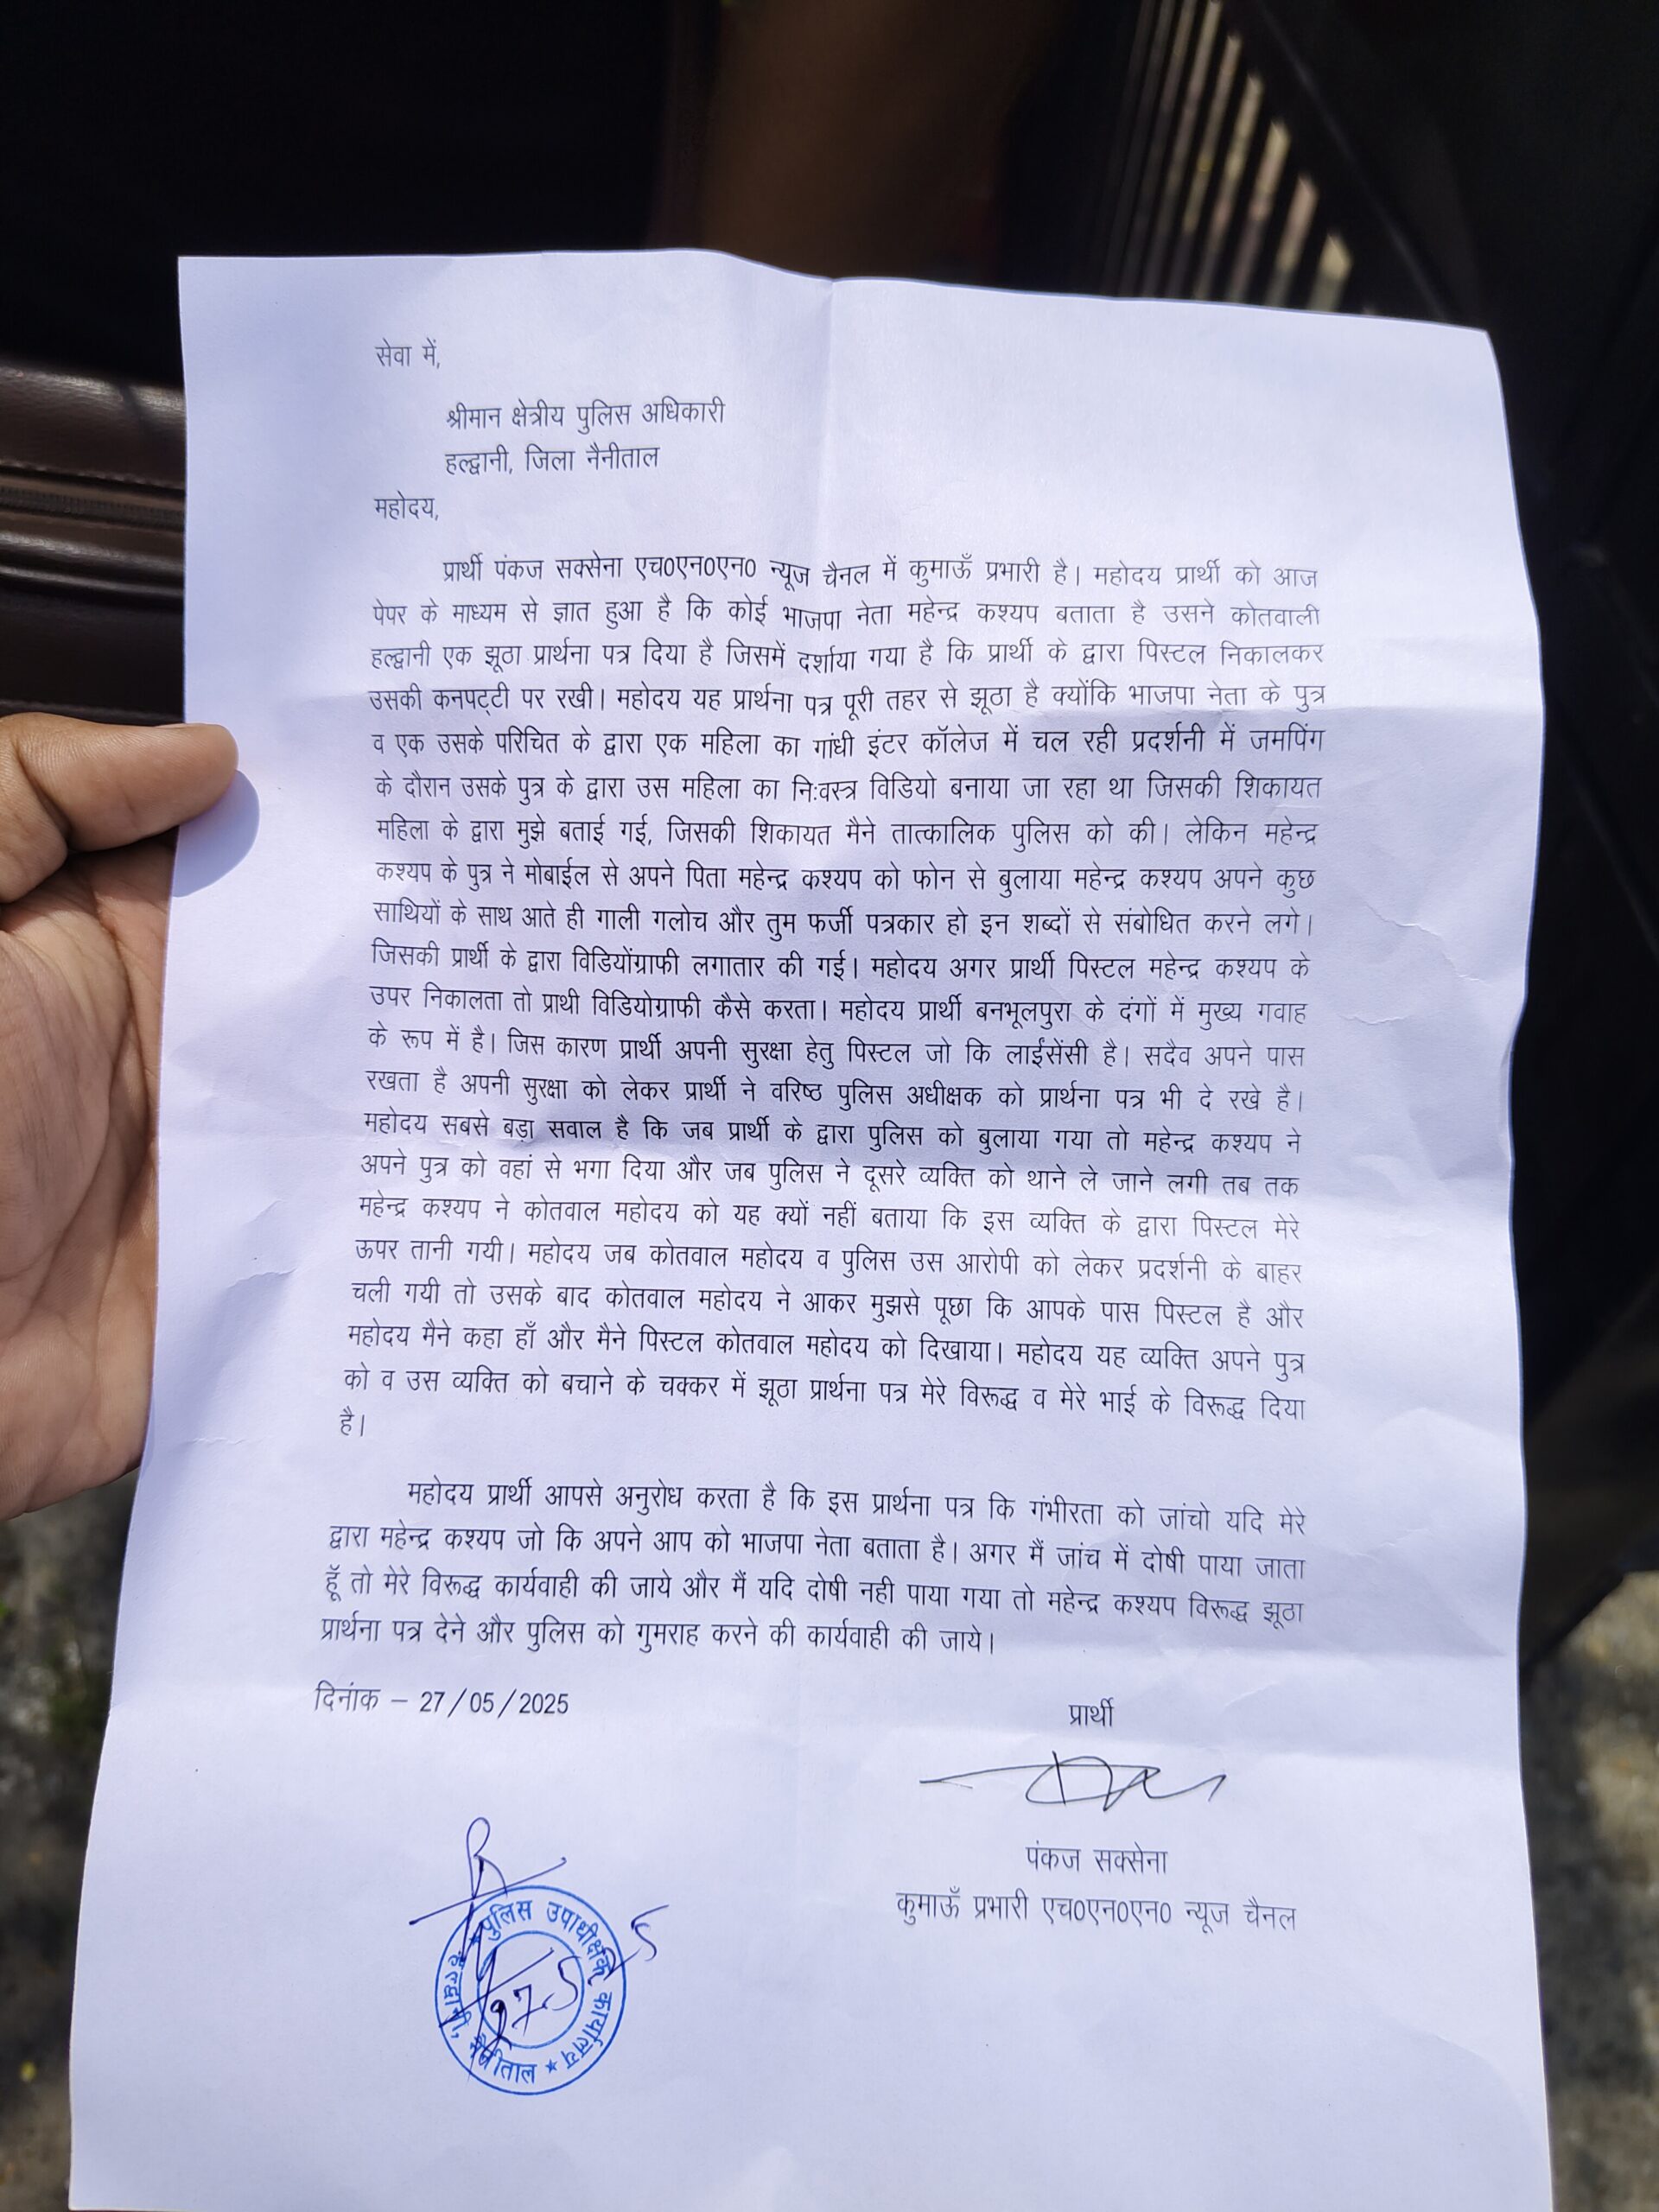 सेवा में,
श्रीमान क्षेत्रीय पुलिस अधिकारी
हल्द्वानी, जिला नैनीताल
महोदय,
प्रार्थी पंकज सक्सेना एच0एन0एन0 न्यूज चैनल में कुमाऊँ प्रभारी है। महोदय प्रार्थी को आज
पेपर के माध्यम से ज्ञात हुआ है कि कोई भाजपा नेता महेन्द्र कश्यप बताता है उसने कोतवाली
हल्द्वानी एक झूठा प्रार्थना पत्र दिया है जिसमें दर्शाया गया है कि प्रार्थी के द्वारा पिस्टल निकालकर
उसकी कनपट्टी पर रखी। महोदय यह प्रार्थना पत्र पूरी तहर से झूठा है क्योंकि भाजपा नेता के पुत्र
व एक उसके परिचित के द्वारा एक महिला का गांधी इंटर कॉलेज में चल रही प्रदर्शनी में जमपिंग
के दौरान उसके पुत्र के द्वारा उस महिला का नि:वस्त्र विडियो बनाया जा रहा था जिसकी शिकायत
महिला के द्वारा मुझे बताई गई, जिसकी शिकायत मैने तात्कालिक पुलिस को की। लेकिन महेन्द्र
कश्यप के पुत्र ने मोबाईल से अपने पिता महेन्द्र कश्यप को फोन से बुलाया महेन्द्र कश्यप अपने कुछ
साथियों के साथ आते ही गाली गलोच और तुम फर्जी पत्रकार हो इन शब्दों से संबोधित करने लगे।
जिसकी प्रार्थी के द्वारा विडियोंग्राफी लगातार की गई। महोदय अगर प्रार्थी पिस्टल महेन्द्र कश्यप के
उपर निकालता तो प्राथी विडियोग्राफी कैसे करता। महोदय प्रार्थी बनभूलपुरा के दंगों में मुख्य गवाह
के रूप में है। जिस कारण प्रार्थी अपनी सुरक्षा हेतु पिस्टल जो कि लाईसेंसी है। सदैव अपने पास
रखता है अपनी सुरक्षा को लेकर प्रार्थी ने वरिष्ठ पुलिस अधीक्षक को प्रार्थना पत्र भी दे रखे है।
महोदय सबसे बड़ा सवाल है कि जब प्रार्थी के द्वारा पुलिस को बुलाया गया तो महेन्द्र कश्यप ने
अपने पुत्र को वहां से भगा दिया और जब पुलिस ने दूसरे व्यक्ति को थाने ले जाने लगी तब तक
महेन्द्र कश्यप ने कोतवाल महोदय को यह क्यों नहीं बताया कि इस व्यक्ति के द्वारा पिस्टल मेरे
ऊपर तानी गयी। महोदय जब कोतवाल महोदय व पुलिस उस आरोपी को लेकर प्रदर्शनी के बाहर
चली गयी तो उसके बाद कोतवाल महोदय ने आकर मुझसे पूछा कि आपके पास पिस्टल है और
महोदय मैने कहा हाँ और मैने पिस्टल कोतवाल महोदय को दिखाया। महोदय यह व्यक्ति अपने पुत्र
को व उस व्यक्ति को बचाने के चक्कर में झूठा प्रार्थना पत्र मेरे विरूद्ध व मेरे भाई के विरूद्ध दिया
है।
महोदय प्रार्थी आपसे अनुरोध करता है कि इस प्रार्थना पत्र कि गंभीरता को जांचो यदि मेरे
द्वारा महेन्द्र कश्यप जो कि अपने आप को भाजपा नेता बताता है। अगर मैं जांच में दोषी पाया जाता
हूँ तो मेरे विरूद्ध कार्यवाही की जाये और मैं यदि दोषी नही पाया गया तो महेन्द्र कश्यप विरूद्ध झूठा
प्रार्थना पत्र देने और पुलिस को गुमराह करने की कार्यवाही की जाये।
दिनांक – 27/05/2025
प्रार्थी
पंकज सक्सेना
कुमाऊँ प्रभारी एच0एन0एन0 न्यूज चैनल
पुलिस उपाधीक्षक कार्यालय
हल्द्वानी, नैनीताल
27.5